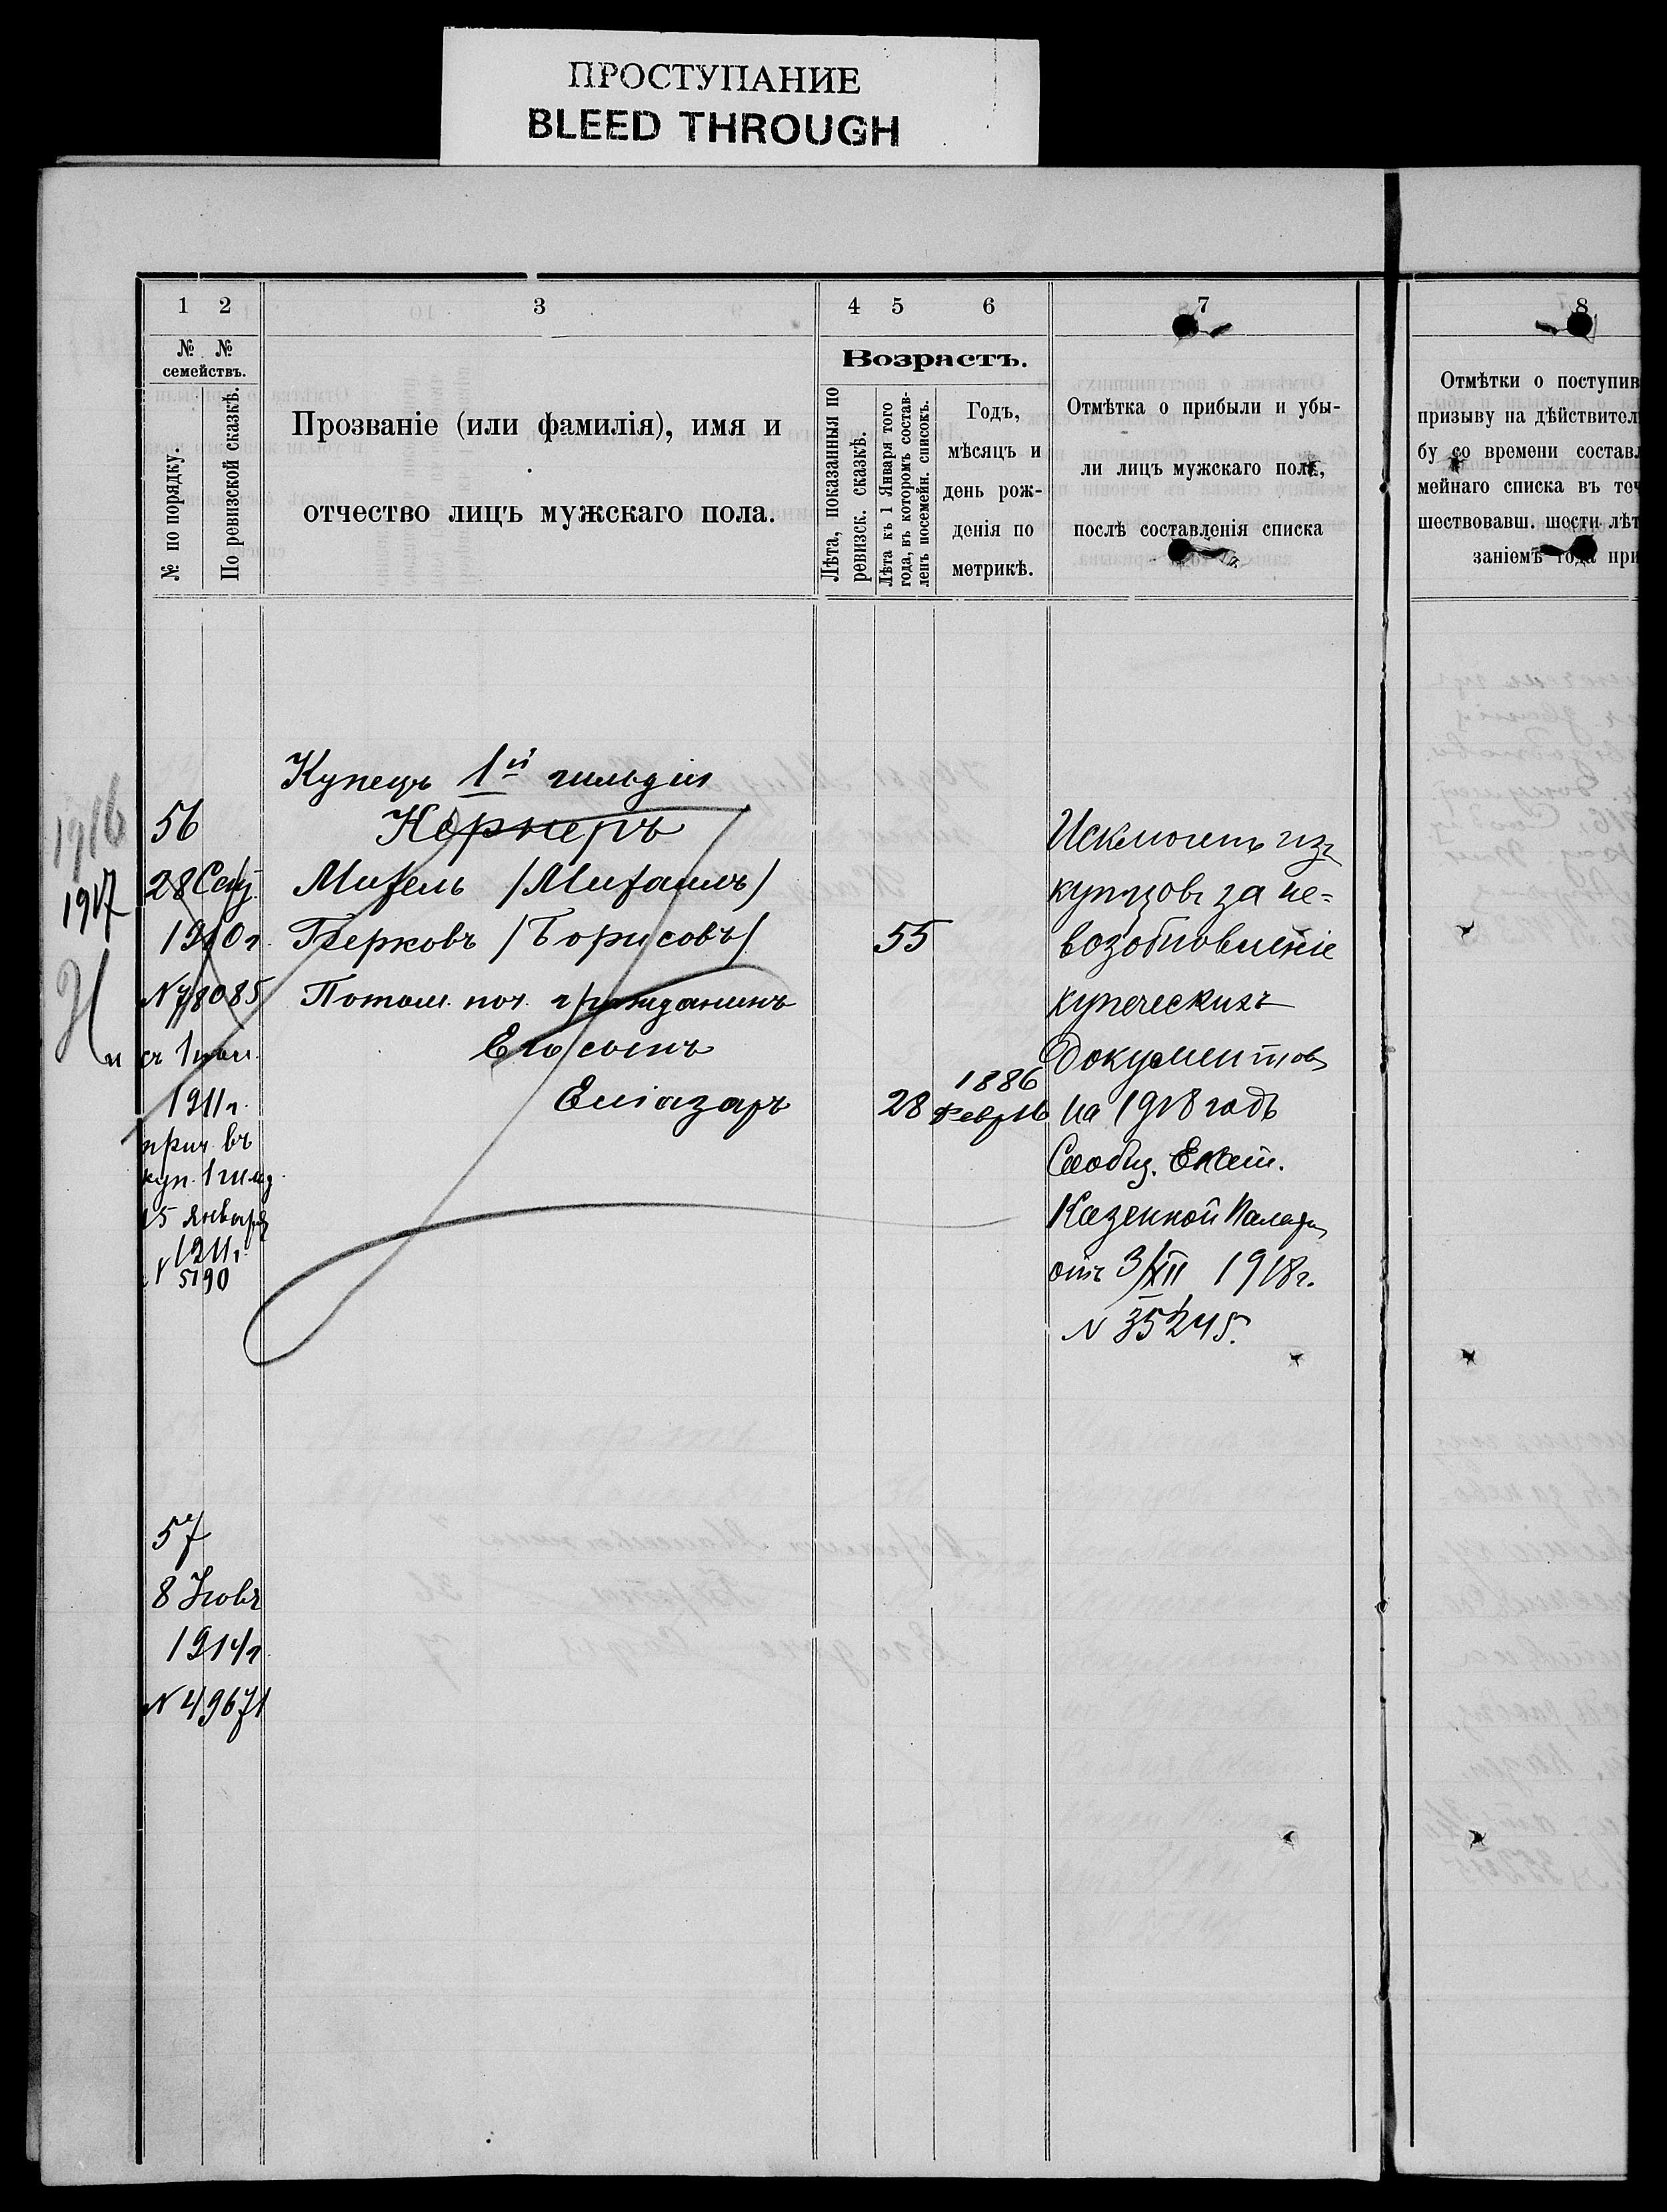 ПРОСТУПАНИЕ
BLEED THROUGH
1 2 3 4 5 6 7 8
№ № семействъ.
№ по порядку.
По ревизской сказкѣ.
Прозваніе (или фамилія), имя и
отчество лицъ мужскаго пола.
Возрастъ.
Лѣта, показанныя по
ревизск. сказкѣ.
Лѣта къ 1 Января того
года, въ которомъ состав-
ленъ посемейн. списокъ.
Годъ,
мѣсяцъ и
день рож-
денія по
метрикѣ.
Отмѣтка о прибыли и убы-
ли лицъ мужскаго пола,
послѣ составленія списка
Отмѣтки о поступив
призыву на дѣйствител
бу со времени составл
мейнаго списка въ теч
шествовавш. шести лѣт
заніемъ года при
1916
1917
56
28 Сент.
1910 г.
N 78085
съ 1 пол.
1911 г.
прич. въ
куп. 1 гильд.
15 января
1911 г.
N 5190
Купецъ 1й гильдіи
Кернеръ
Михель (Михаилъ)
Берковъ (Борисовъ)
Потом. поч. гражданинъ
Его сынъ
Еліазаръ
55
28
1886
Февр 16
Исключенъ изъ
купцовъ за не=
возобновленіе
купеческихъ
документовъ
на 1918 годъ
Сообщ. Екат.
Казенной Палаты
отъ 3/XII 1918 г.
N 35245.
57
8 Нояб
1914 г.
N 49671